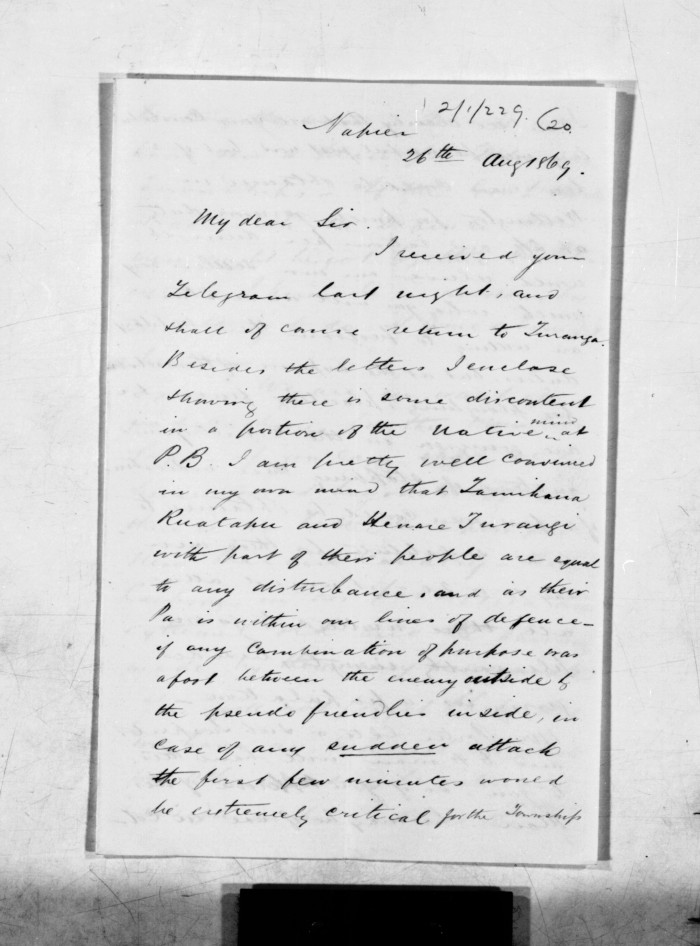 2/1/229. (20.
Napier
26th Aug 1869.
My dear Sir.
I received your
Telegram last night, and
shall of course return to Turanga.
Besides the letters I enclose
showing there is some discontent
in a portion of the native mind at
P.B. I am pretty well convinced
in my own mind that Tamihana
Ruatapu and Henare Turangi
with part of their people are equal
to any disturbance, and as their
Pa is within our lines of defence—
if any combination of purpose was
afoot between the enemy outside &
the pseudo friendlies inside, in
case of any sudden attack
the first few minutes would
be extremely critical for the Township